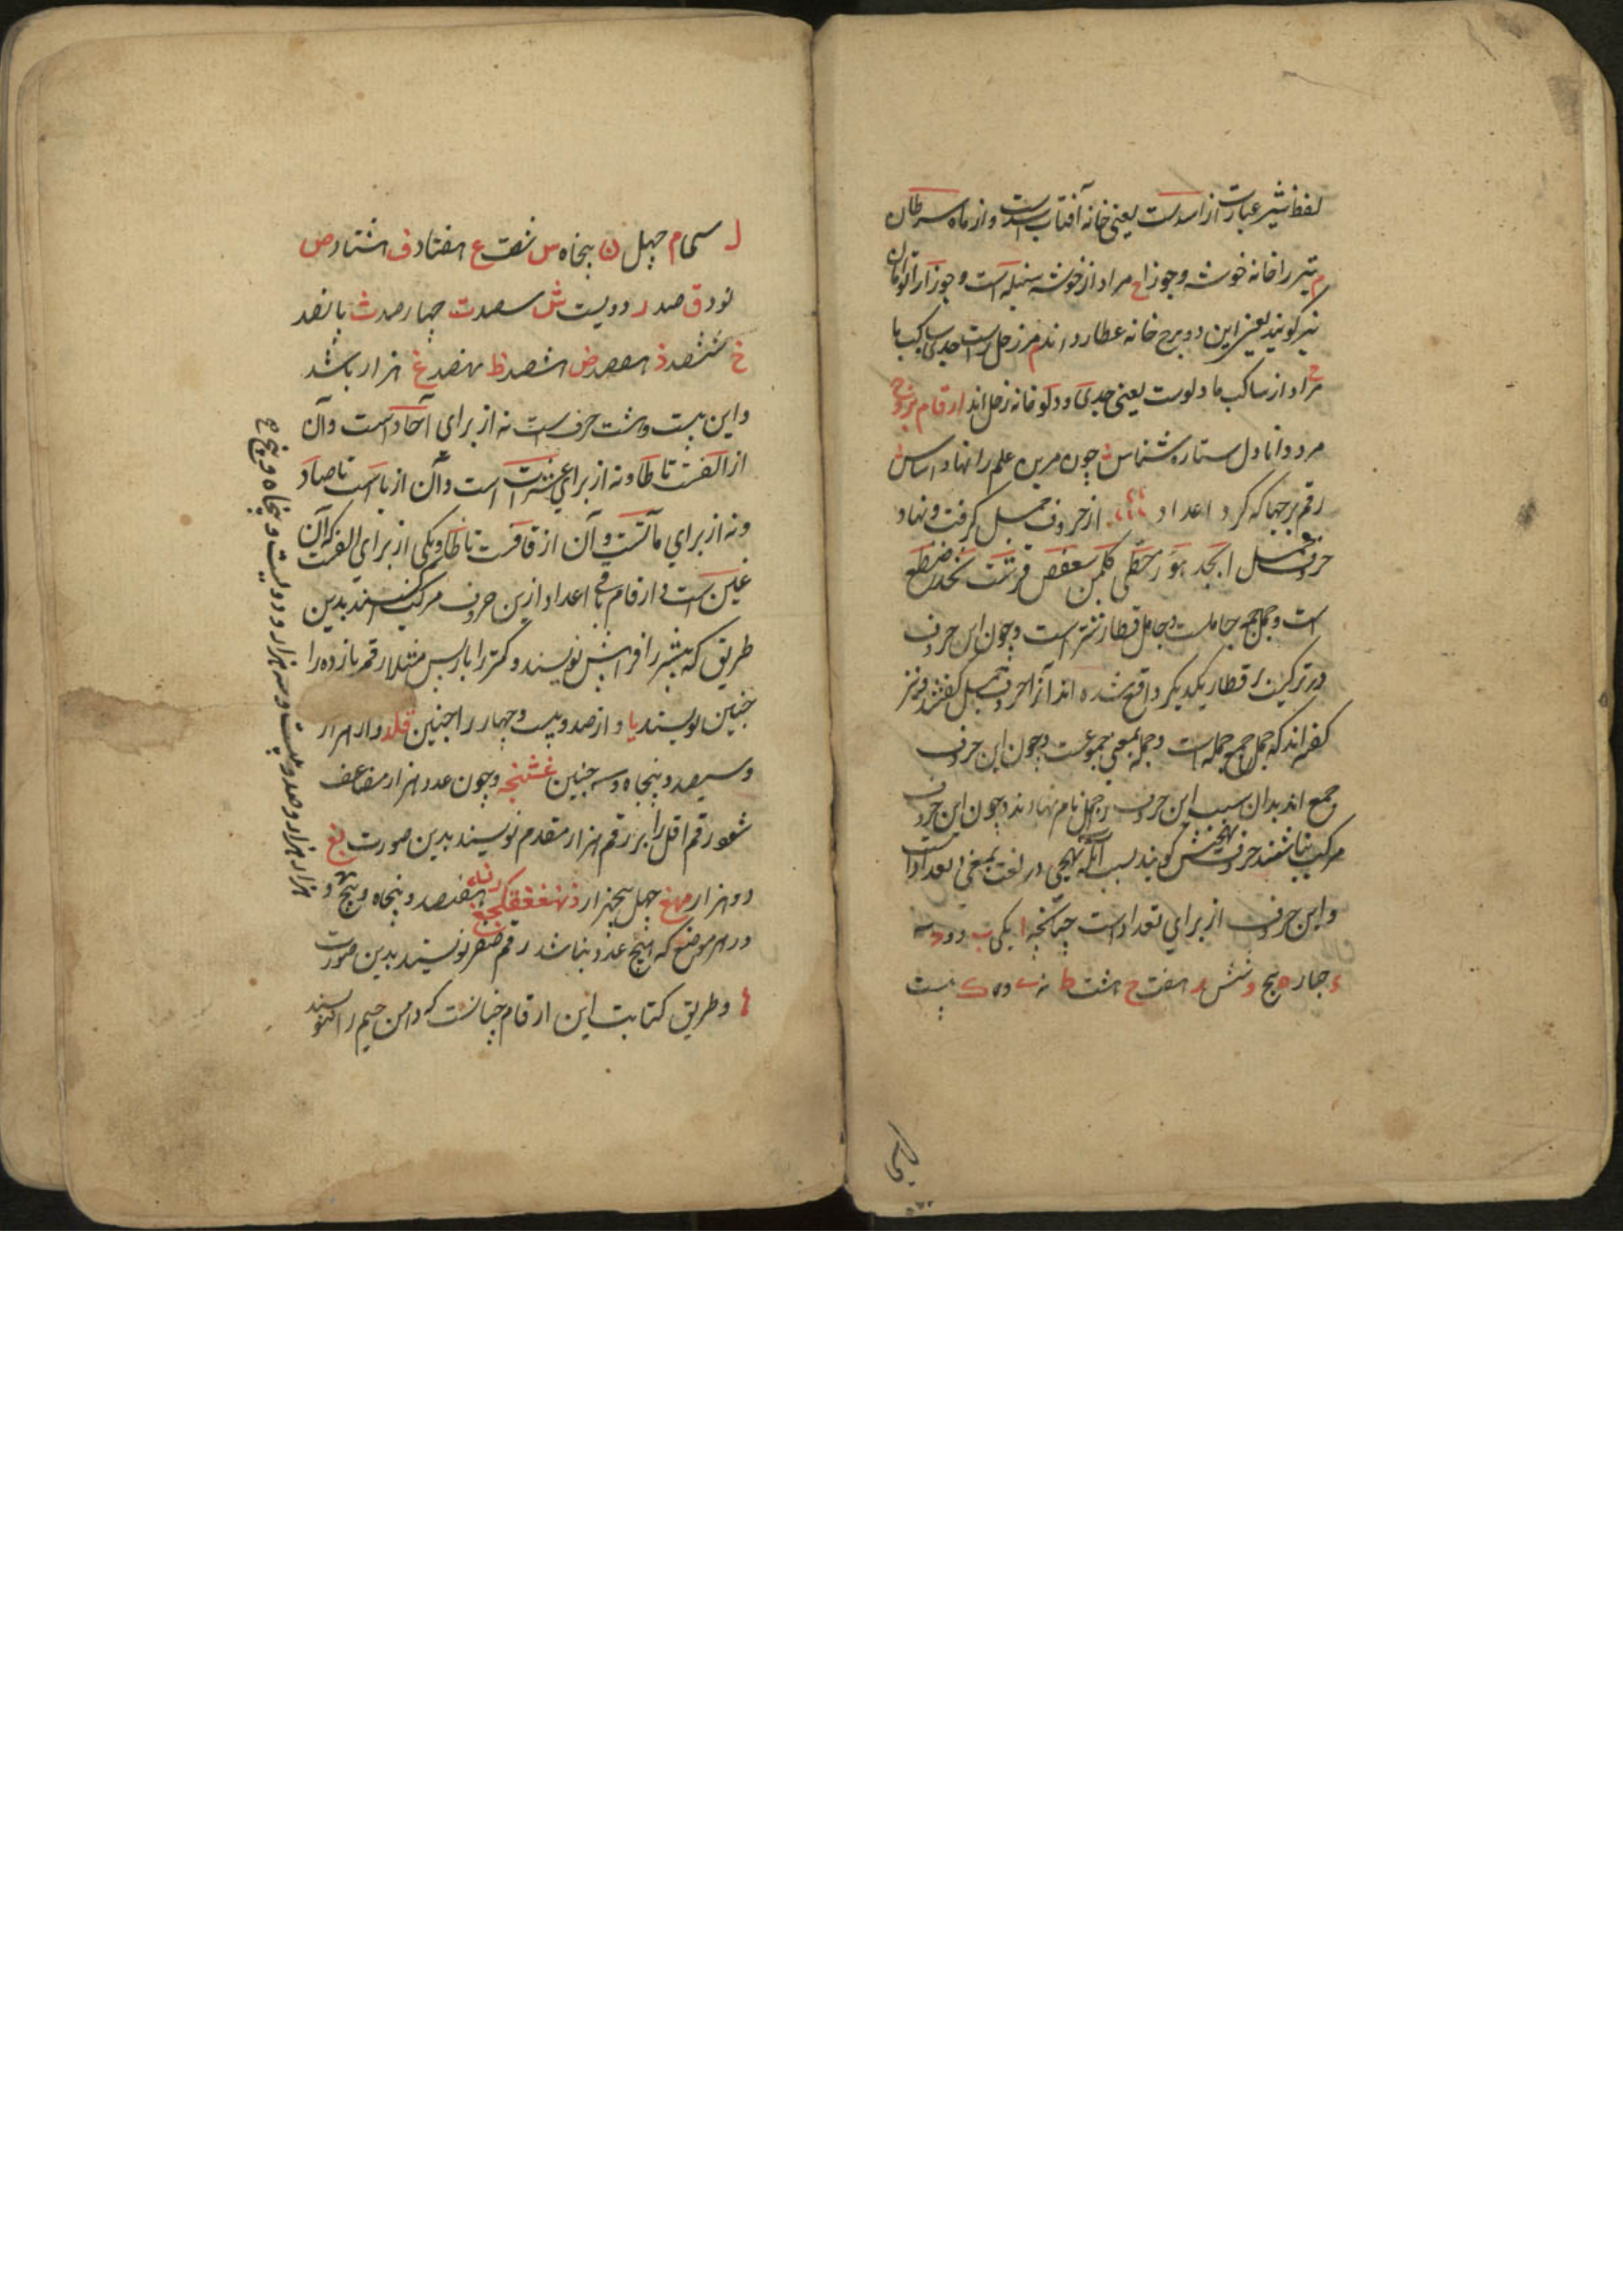 لفظ شیر عبارت از اسدست یعنی خانه آفتاب اسدست و از ماه سرطان
م تیر را خانه خوشه و جوزا ح مراد از خوشه سنبله است و جوزا را توامان
نیز گویند یعنی این دو برج خانه عطارد اند م مر زحل راست جدی ساکب ما
ح مراد از ساکب ما دلوست یعنی جدی و دلو خانه زحل اند ارقام بروج
مرد دانا دل ستاره شناس چون مرین علم را نهاد اساس
رقم برجها که کرد اعداد از حروف جمل گرفت و نهاد
حروف جمل ابجد هوز حطی کلمن سعفص قرشت ثخذ ضظغ
است و جمل جمع جاملست و جامل قطار شتر است و چون این حروف
در ترکیب قطار یکدیگر واقع شده اند آنرا حروف جمل گفتند و نیز
گفته اند که جمل جمع جمله است و جمله بمعنی مجموعست و چون این حروف
جمع اند بدان سبب این حروف را جمل نام نهادند و چون این حروف
مرکب نباشند حروف تهجیش گویند بسبب آنکه تهجی در لغت بمعنی تعدادست
و این حروف از برای تعداد است چنانچه ا یکی ب دو ج سه
د چهار ه پنج و شش ز هفت ح هشت ط نه ی ده ک بیست
ل سی م چهل ن پنجاه س شصت ع هفتاد ف هشتاد ص
نود ق صد ر دویست ش سیصد ت چهارصد ث پانصد
خ ششصد ذ هفصد ض هشصد ظ نهصد غ هزار باشد
و این بیست و هشت حرفست نه از برای آحاد است و آن
از الفست تا طا و نه از برای عشرات است و آن از یا است تا صاد
و نه از برای مآتست و آن از قافست تا ظا و یکی از برای الفست که آن
غین است و ارقام باقی اعداد ازین حروف مرکب کنند بدین
طریق که بیشتر را فرا پیش نویسند و کمتر را باز پس مثلا رقم یازده را
چنین نویسند یا و از صد و بیست و چهار را چنین قکد و از هزار
و سیصد و پنجاه و سه چنین غشنج و چون عدد هزار مضاعف
شود رقم اقل را بر رقم هزار مقدم نویسند بدین صورت بغ
دو هزار مهغ چهل پنجهزار هفتصد و پنجاه و پنج و
هزار هزار و صد و بیست و سه هزار و دویست و پنجاه و پنج
و در هر موضع که هیچ عدد نباشد رقم صفر نویسند بدین صورت
و طریق کتابت این ارقام چنانست که دامن جیم را ننویسند